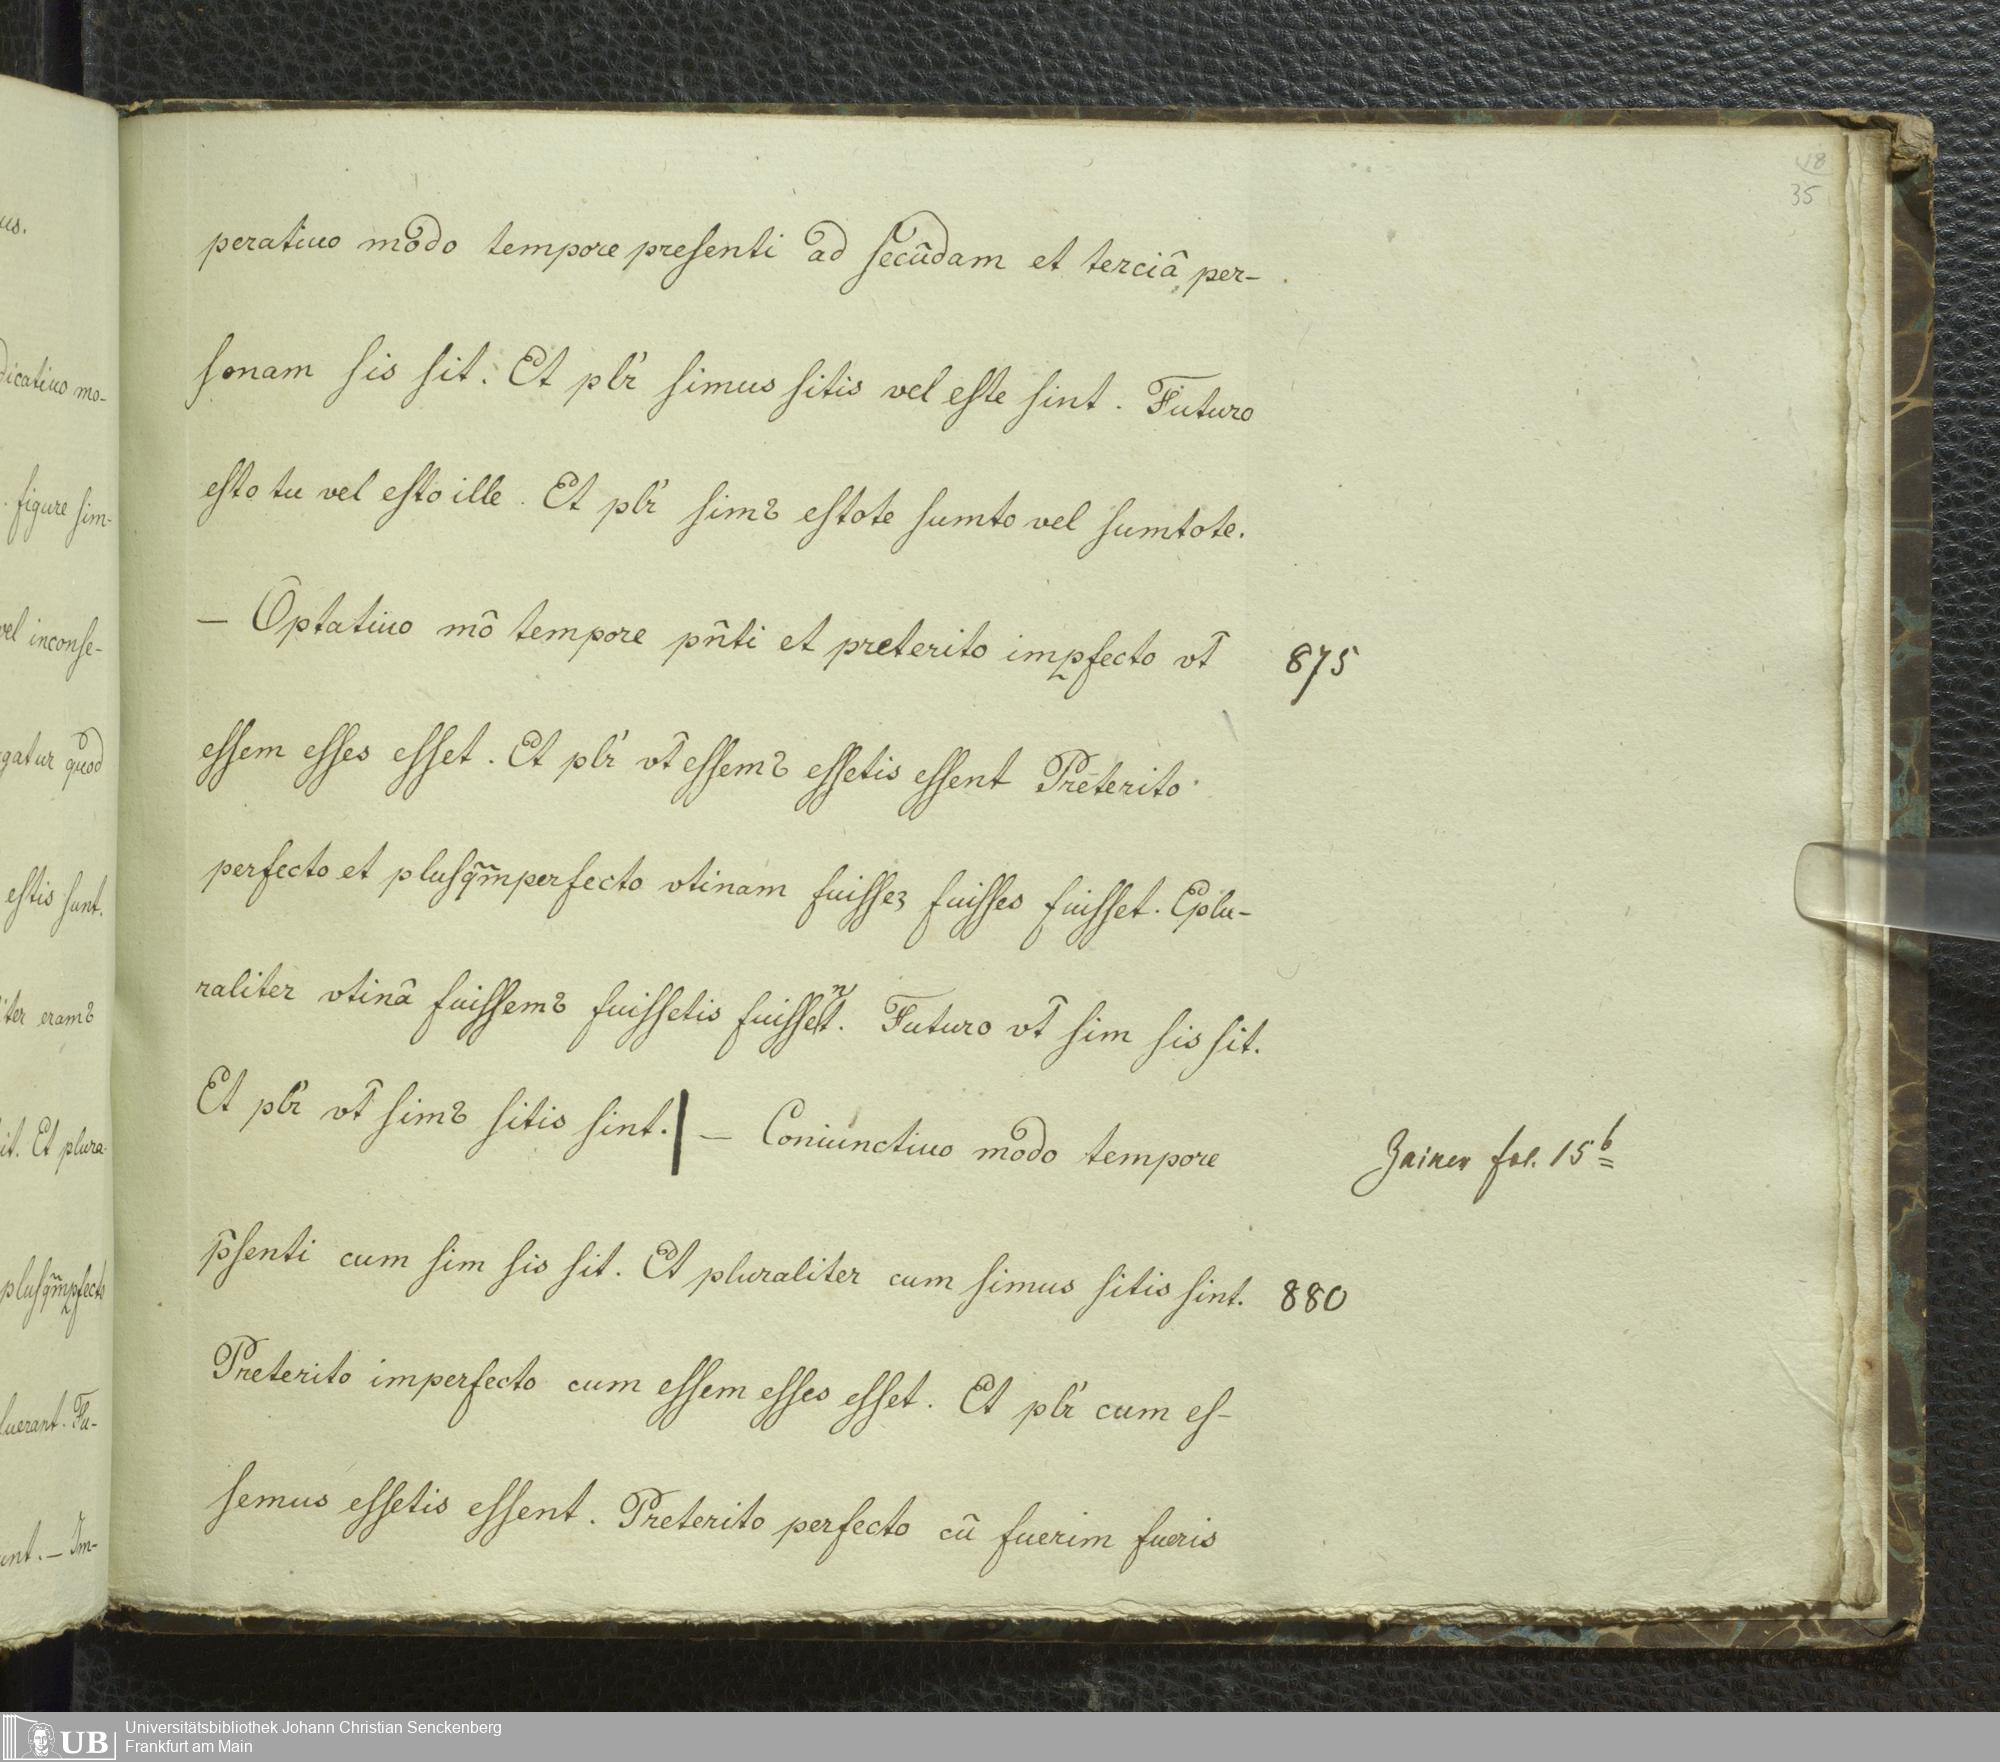 us.
dicatiuo mo-
. figure sim-
vel inconse-
gatur quod
estis sunt.
iter eramꝰ
it. Et plura-
plusq̃m̃ꝑfecto
fuerant. Fu-
unt. — Im-
48
35
peratiuo modo tempore presenti ad secũdam et terciã per-
sonam sis sit. Et plr̃ simus sitis vel este sint. Futuro
esto tu vel esto ille. Et plr̃ simꝰ estote sumto vel sumtote.
— Optatiuo mõ tempore pñti et preterito imꝑfecto vt̃ 875
essem esses esset. Et plr̃ vt̃ essemꝰ essetis essent Preterito
perfecto et plusq̃m̃perfecto vtinam fuisseꝫ fuisses fuisset. Eplu-
raliter vtinã fuissemꝰ fuissetis fuissent. Futuro vt̃ sim sis sit.
Et plr̃ vt̃ simꝰ sitis sint. | — Coniunctiuo modo tempore Zainer fol. 15b
p̃senti cum sim sis sit. Et pluraliter cum simus sitis sint. 880
Preterito imperfecto cum essem esses esset. Et plr̃ cum es-
semus essetis essent. Preterito perfecto cũ fuerim fueris
UB
Universitätsbibliothek Johann Christian Senckenberg
Frankfurt am Main